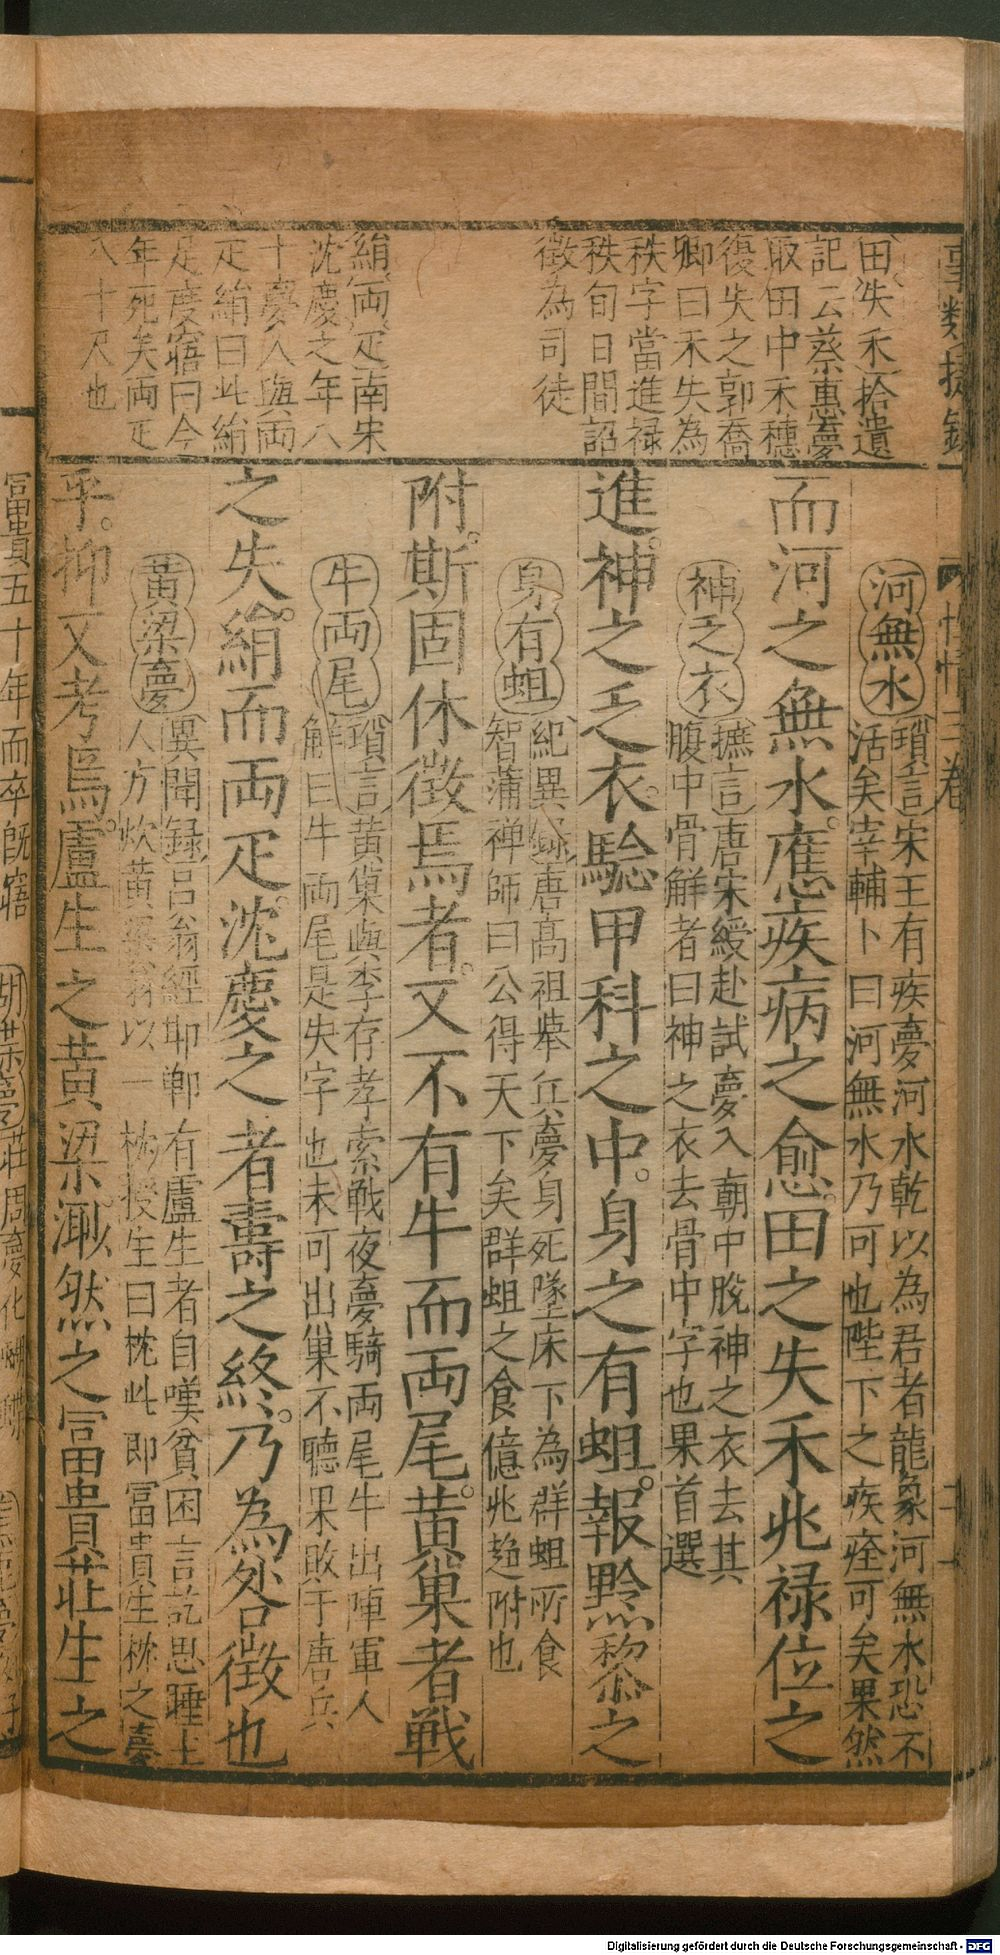 田失禾拾遺
記云蔡惠夢
取田中禾穗
復失之郭喬
卿曰禾失為
秩字當進禄
秩旬日間詔
徵為司徒
絹兩疋南宋
沈慶之年八
十夢人與兩
疋絹曰此絹
足度寤曰今
年死矣兩疋
八十尺也
河無水
瑣言宋王有疾夢河水乾以為君者龍象河無水恐不
活矣宰輔卜曰河無水乃可也陛下之疾痊可矣果然
而河之無水應疾病之愈田之失禾兆禄位之
神之衣
摭言唐宋綬赴試夢入朝中脫神之衣去其
腹中骨解者曰神之衣去骨中字也果首選
進神之之衣驗甲科之中身之有蛆報黔黎之
身有蛆
紀異録唐高祖舉兵夢身死墜床下為群蛆所食
智蒲禅師曰公得天下矣群蛆之食億兆趨附也
附斯固休徵焉者又不有牛而兩尾黄巢者戰
牛兩尾
瑣言黄巢與李存孝索戰夜夢騎兩尾牛出陣軍人
解曰牛兩尾是失字也未可出巢不聽果敗于唐兵
之失絹而兩疋沈慶之者壽之終乃為咎徵也
黄梁夢
異聞録呂翁經邯鄲有盧生者自嘆貧困言訖思睡主
人方炊黄粱翁以一枕授生曰枕此即富貴生枕之夢
乎抑又考焉盧生之黄梁溉然之富貴莊生之
富貴五十年而卒旣寤 胡蝶夢莊周夢化蝴蝶
Digitalisierung gefördert durch die Deutsche Forschungsgemeinschaft - DFG